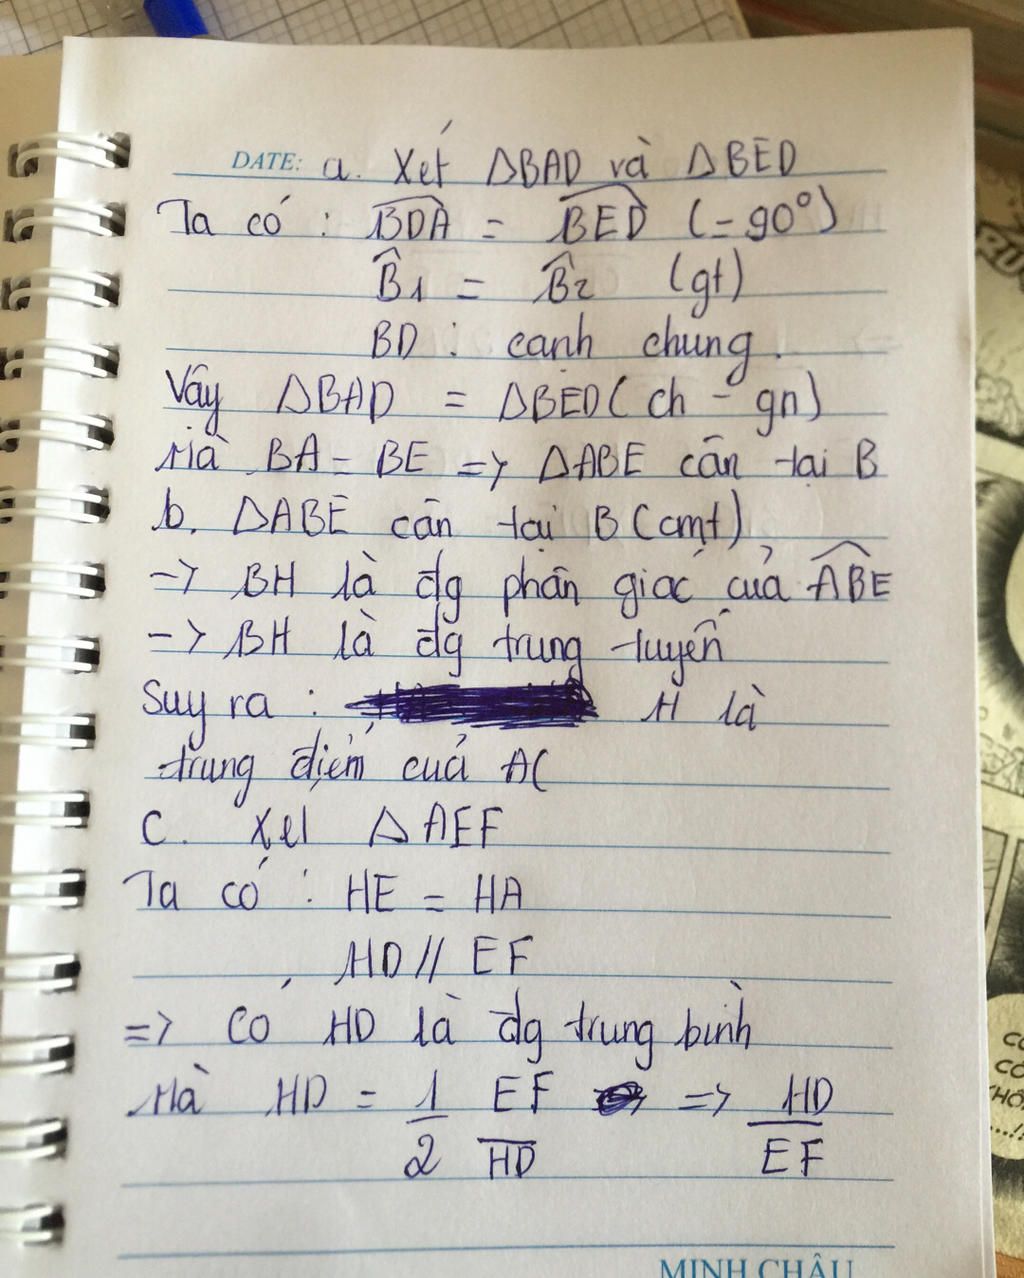 DATE: a. Xét ΔBAD và ΔBED
Ta có : \widehat{BDA} = \widehat{BED} (=90°)
\widehat{B}1 = \widehat{B}2 (gt)
BD : cạnh chung.
Vậy ΔBAD = ΔBED (ch - gn)
Mà BA = BE => ΔABE cân tại B
b. ΔABE cân tại B (cmt)
-> BH là đg phân giác của \widehat{ABE}
-> BH là đg trung tuyến
Suy ra : H là
trung điểm của AC
c. Xét ΔAEF
Ta có : HE = HA
HD // EF
=> Có HD là đg trung bình
Mà HD = 1/2 EF/HD => HD/EF
MINH CHÂU
CC
CÓ
...!